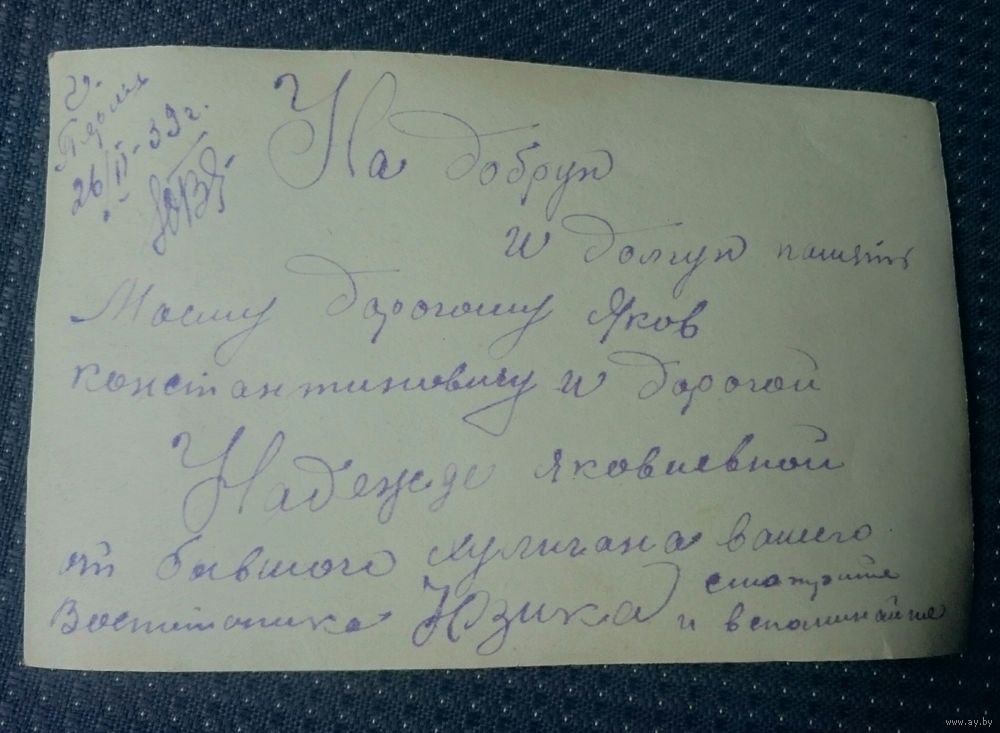 26/II-39 г.
На добрую
и долгую память
Моему дорогому Яков
константиновичу и дорогой
Надежде яковлевной
от бывшого хулигана вашего
Воспитаника Юзика смотрите
и вспоминайте
www.ay.by